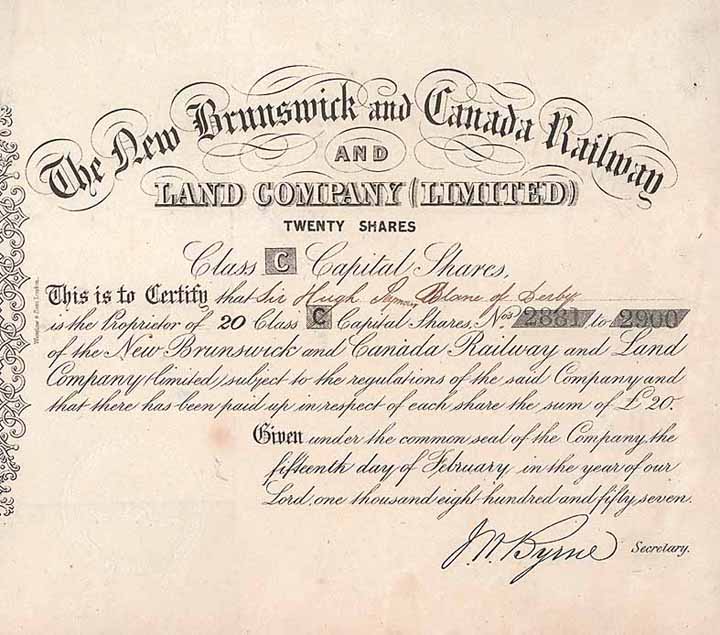 The New Brunswick and Canada Railway
AND
LAND COMPANY (LIMITED)
TWENTY SHARES
Class C Capital Shares,
This is to Certify that Sir Hugh Blane of Derby
is the Proprietor of 20 Class C Capital Shares, Nos. 2881 to 2900
of the New Brunswick and Canada Railway and Land
Company (limited) subject to the regulations of the said Company and
that there has been paid up in respect of each share the sum of £20.
Given under the common seal of the Company, the
fifteenth day of February in the year of our
Lord, one thousand eight hundred and fifty seven.
J. W. Byrne Secretary.